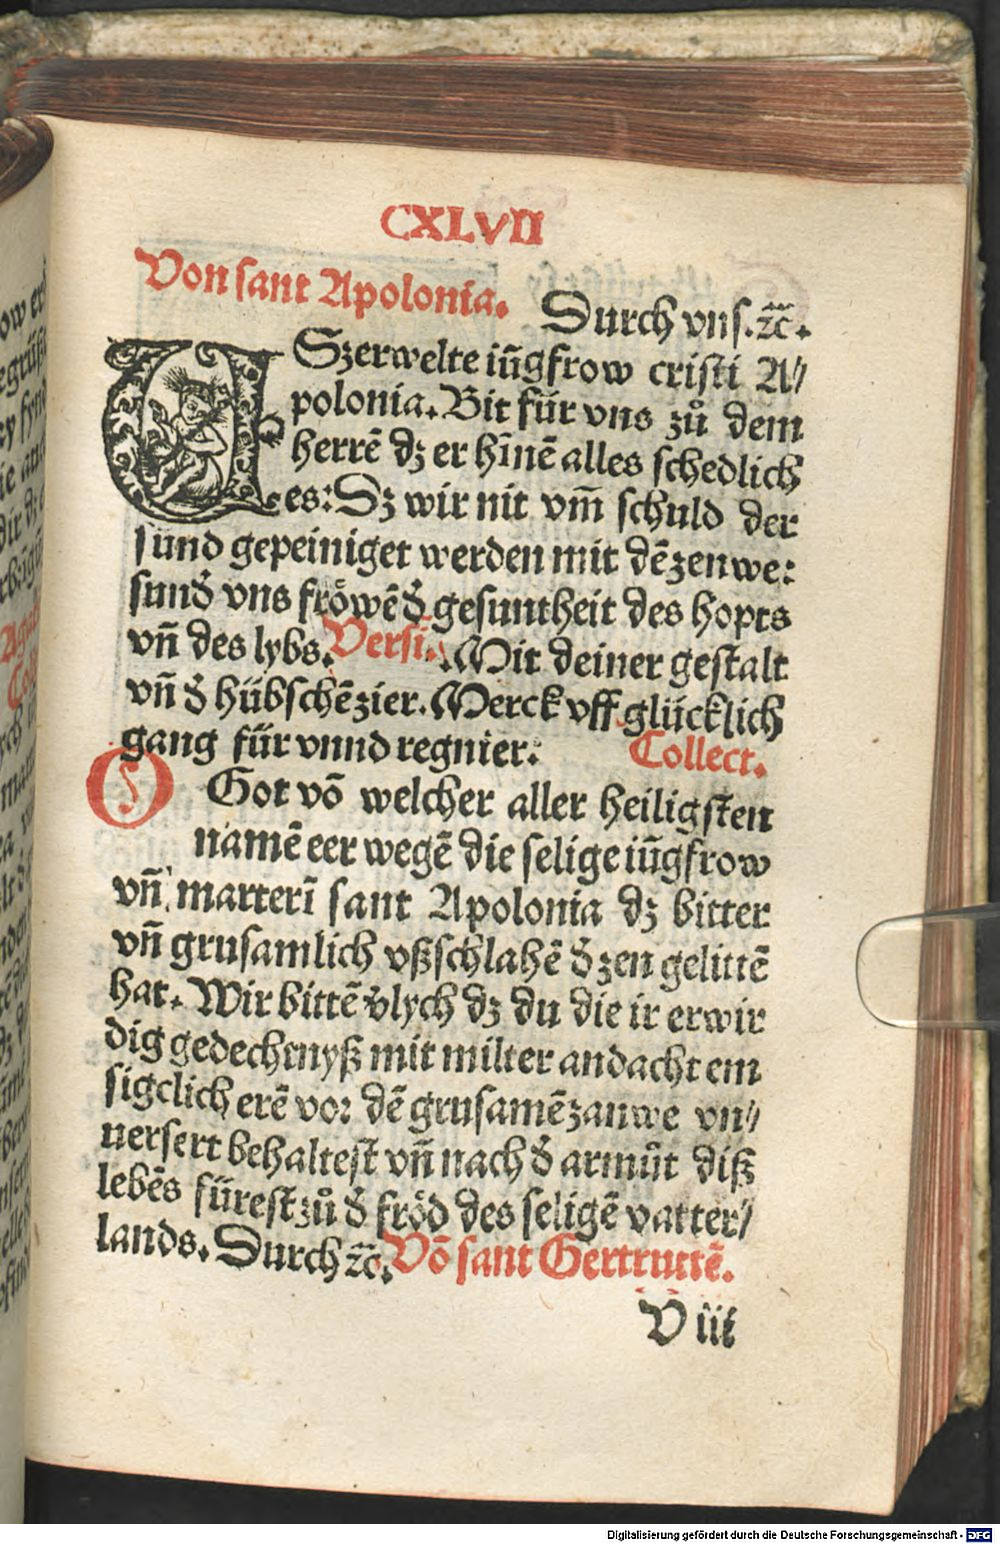 CXLVII
Von sant Apolonia. Durch vns. ⁊c̃.
USzerwelte iūgfrow cristi A⸗
polonia. Bit für vns zů dem
herrē dz er hīnē alles schedlich
es: Dz wir nit vm̄ schuld der
sund gepeiniget werden mit dē zenwe:
sund' vns fröwē d' gesuntheit des hopts
vn̄ des lybs. Versi. Mit deiner gestalt
vn̄ d' hübschē zier. Merck vff glücklich
gang für vnnd regnier. Collect.
O Got vō welcher aller heiligsten
namē eer wegē die selige iūgfrow
vn̄ marterī sant Apolonia dz bitter
vn̄ grusamlich vßschlahē d' zen gelittē
hat. Wir bittē d'lych dz du die ir erwir
dig gedechtnyß mit milter andacht em
sigclich erē vor dē grusamē zanwe vn⸗
uersert behaltest vn̄ nach d' armůt diß
lebēs fürest zů d' fröd des seligē vatter⸗
lands. Durch ⁊c̃. Vō sant Gertruttē.
V iii
Digitalisierung gefördert durch die Deutsche Forschungsgemeinschaft - DFG